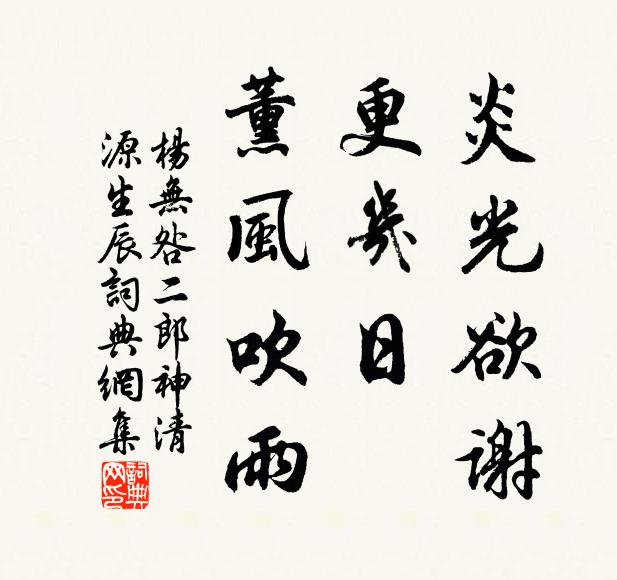 炎光欲谢
更幾日
薰風吹雨
楊無咎二郎神清
源生辰詞典網集
詞典网印